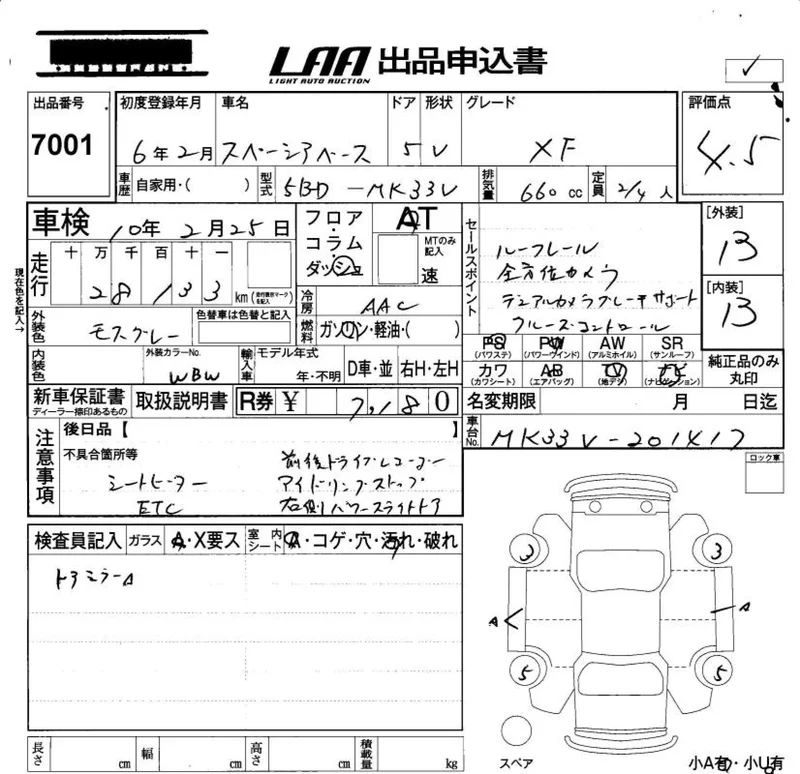 LAA 出品申込書
LIGHT AUTO AUCTION
出品番号 初度登録年月 車名 ドア 形状 グレード 評価点
7001 6年2月 スペーシアベース 5 V XF 4.5
車歴 自家用・( ) 型式 5BD-MK33V 排気量 660cc 定員 2/4人
車検 10年2月25日 フロア・コラム・ダッシュ AT セールスポイント [外装]
MTのみ記入 速
13
走行 十 万 千 百 十 一
28133 km (走行要示マークを記入)
ルーフレール
全方位カメラ
デュアルカメラブレーキサポート
クルーズコントロール
[内装]
13
現在色を記入→
冷房 AAC
外装色 モスグレー 色替車は色替と記入 燃料 ガソリン・軽油・( )
PS PW AW SR
(パワステ) (パワーウインド) (アルミホイル) (サンルーフ)
カワ AB TV ナビ
(カワシート) (エアバッグ) (地デジ) (ナビゲーション)
純正品のみ丸印
内装色 外装カラーNo. WBW 輸入車 モデル年式 年・不明 D車・並 右H・左H
新車保証書 取扱説明書 R券 ¥ 7,180 名変期限 月 日迄
ディーラー捺印あるもの
車台No. MK33V-201417
注意事項 後日品【 】
不具合箇所等
シートヒーター
ETC
前後ドライブレコーダー
アイドリングストップ
右側パワースライドドア
ロック車
検査員記入 ガラス A・X要ス 室内シート A・コゲ・穴・汚れ・破れ
ドアミラーA
3 3
A A
5 5
スペア
長さ cm 幅 cm 高さ cm 積載量 kg
小A有・小U有